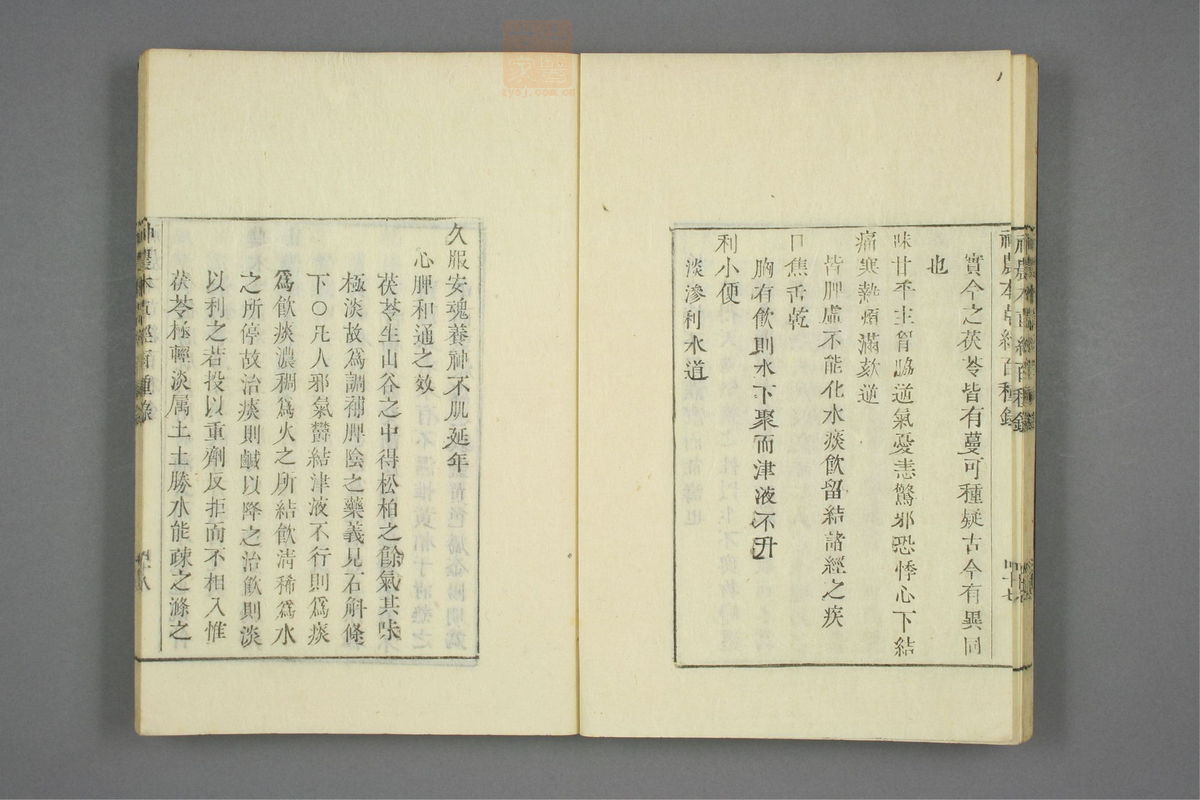 神農本草經百種錄
四十七
實今之茯苓皆有蔓可種疑古今有異同
也
味甘平主胷脇逆氣憂恚驚邪恐悸心下結
痛寒熱煩滿欬逆
皆脾虛不能化水痰飲留結諸經之疾
口焦舌乾
胸有飲則水下聚而津液不升
利小便
淡滲利水道
久服安魂養神不肌延年
心脾和通之效
茯苓生山谷之中得松柏之餘氣其味
極淡故為調補脾陰之藥義見石斛條
下〇凡人邪氣鬱結津液不行則為痰
為飲痰濃稠為火之所結飲清稀為水
之所停故治痰則鹹以降之治飲則淡
以利之若投以重劑反拒而不相入惟
茯苓極輕淡属土土勝水能疎之滌之
神農本草經百種錄
四十八